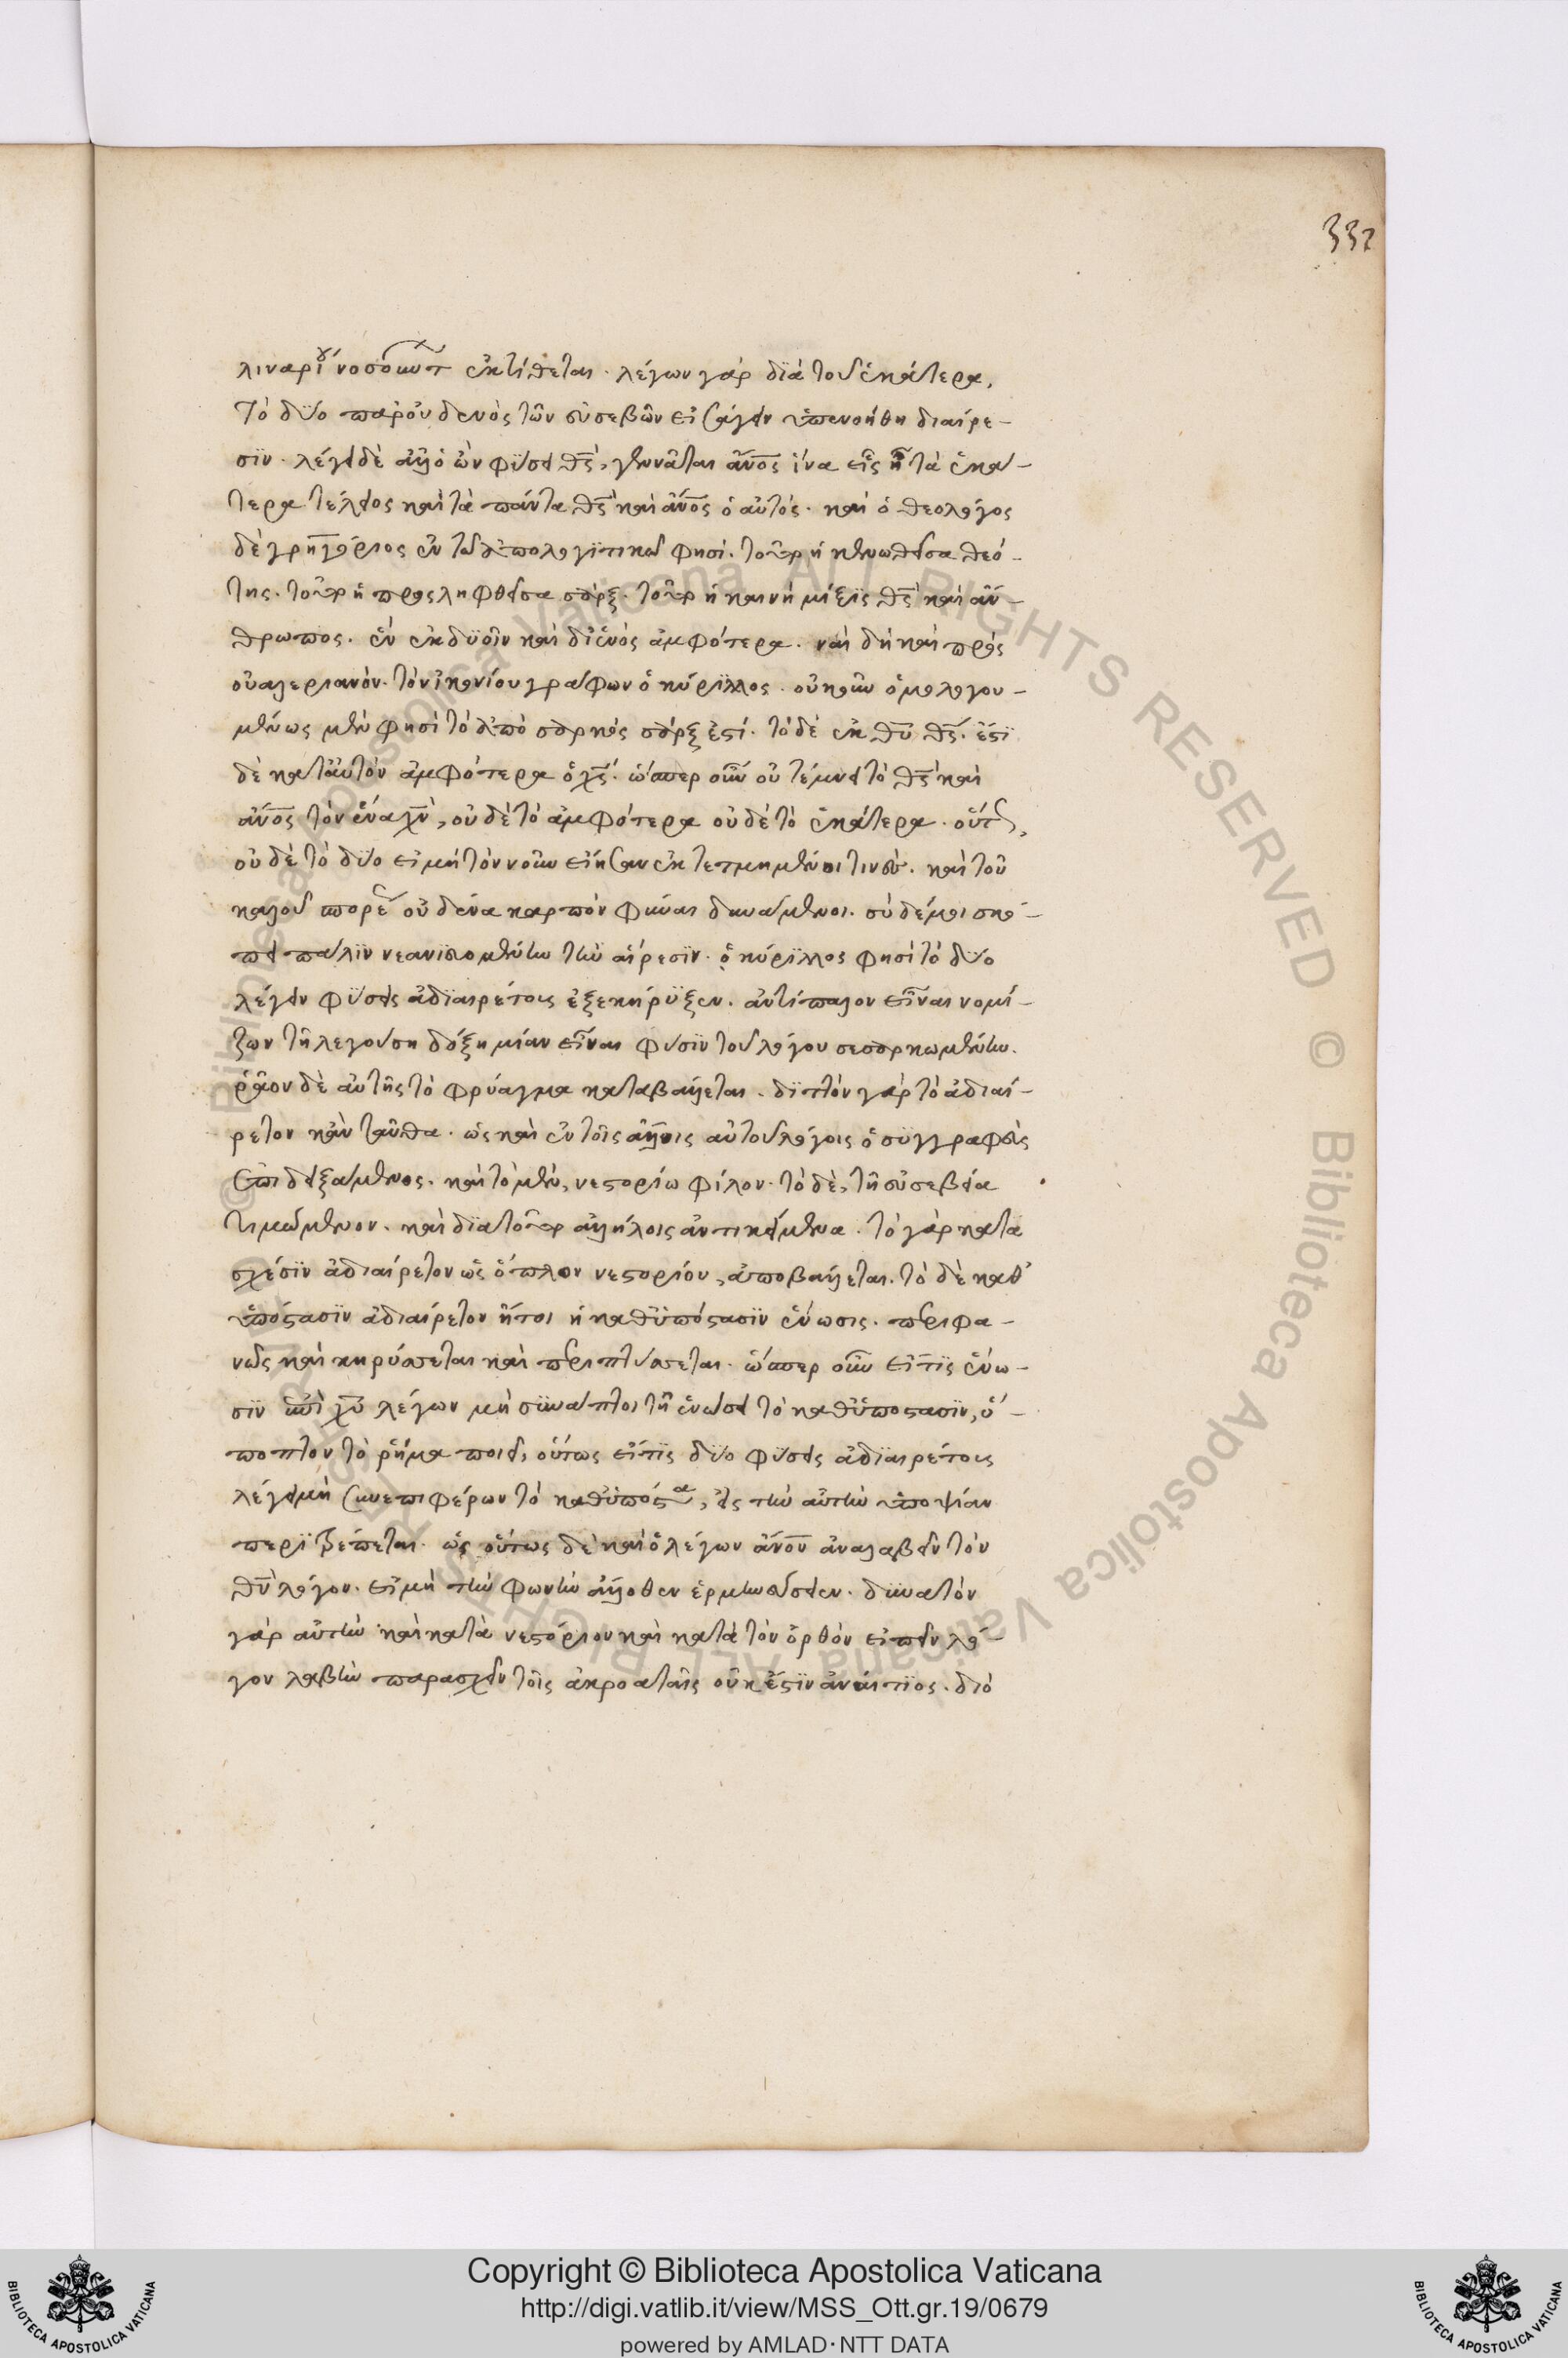 332
λιναρίου νοσο ἐκτίθεται. λέγων γὰρ διὰ τοῦ ἑκάτερα,
τὸ δύο παρ οὐδενὸς τῶν εὐσεβῶν εἰσάγειν ὑπενοήθη διαίρε-
σϊν. λέγει δὲ ἀλλ ὁ ὢν φύσει θ̅ς̅, γεννᾶται ἄν̅ο̅ς̅ ἵνα εἷς ᾖ τὰ ἑκά-
τερα τέλειος καὶ τὰ πάντα θ̅ς̅ καὶ ἄν̅ο̅ς̅ ὁ αὐτός. καὶ ὁ θεολόγος
δὲ γρηγόριος ἐν τῶ ἀπολογϊτικῶ φησί. τοῦτο ἡ κενωθεῖσα θεό-
της. τοῦτο ἡ προςληφθεῖσα σάρξ. τοῦτο ἡ καινὴ μίξϊς θ̅ς̅ καὶ ἄν-
θρωπος. ἓν ἐκ δυοῖν καὶ δι ἑνὸς ἀμφότερα. ναὶ δὴ καὶ πρὸς
οὐαλεριανὸν τὸν ἰκονίου γράφων ὁ κύριλλος. οὐκοῦν ὁμολογου-
μένως μὲν φησὶ τὸ ἀπὸ σαρκὸς σάρξ ἐστί. τὸ δὲ ἐκ θ̅υ̅ θ̅ς̅. ἔστϊ
δὲ κατ αυτὸν ἀμφότερα ὁ χ̅ς̅. ὥσπερ οὖν οὐ τέμνει τὸ θ̅ς̅ καὶ
ἄν̅ο̅ς̅ τὸν ἕνα χ̅ν̅, οὐδὲ τὸ ἀμφότερα οὐδὲ τὸ ἑκάτερα. οὕτως,
οὐδὲ τὸ δύο εἰ μὴ τὸν νοῦν εἴησαν ἐκτετμημένοι τινὲς. καὶ τοῦ
καλοῦ πορε οὐδένα καρπὸν φῦναι δυνάμενοι. σὺ δέ μοι σκό-
πει πάλϊν νεανϊευομένην τὴν αἵρεσϊν. ὁ κύριλλος φησὶ τὸ δύο
λέγειν φύσεις ἀδϊαιρέτοις ἐξεκήρυξεν. ἀντίπαλον εἶναι νομί-
ζων τῆ λεγούση δόξη μίαν εἶναι φύσϊν τοῦ λόγου σεσαρκωμένην.
ῥᾶον δὲ αὐτῆς τὸ φρύαγμα καταβάλλεται. διττὸν γὰρ τὸ ἀδιαί-
ρετον κἂν ταῦθα. ὡς καὶ ἐν τοῖς ἄλλοις αὐτοῦ λόγοις ὁ συγγραφεὺς
ἐπιδειξάμενος. καὶ τὸ μὲν, νεστορίω φίλον. τὸ δὲ, τῆ εὐσεβεία
τιμώμενον. καὶ διὰ τοῦτο ἀλλήλοις ἀντικείμενα. τὸ γὰρ κατὰ
σχέσϊν ἀδιαίρετον ὡς ὅπλον νεστορίου, ἀποβάλλεται. τὸ δὲ καθ
ὑπόστασϊν ἀδιαίρετον ἤτοι ἡ καθυπόστασϊν ἕνωσις. περιφα-
νῶς καὶ κηρύσσεται καὶ περιπτύσσεται. ὥσπερ οὖν εἴ τϊς ἕνω-
σϊν ἐπὶ χ̅υ̅ λέγων μὴ συνάπτοι τῆ ἑνώσει τὸ καθυπόστασϊν, ὕ-
ποπτον τὸ ῥῆμα ποιεῖ, οὕτως εἴ τϊς δύο φύσεις ἀδιαιρέτοις
λέγει μὴ συνεπιφέρων τὸ καθυπόστα, εἰς τὴν αὐτὴν ὑποψίαν
περιτρέπεται. ὡς οὕτως δὲ καὶ ὁ λέγων ἄν̅ο̅ν̅ ἀναλαβεῖν τὸν
θ̅ν̅ λόγον. εἰ μὴ τὴν φωνὴν ἄλλοθεν ἑρμηνεύσειεν. δυνατὸν
γὰρ αὐτὴν καὶ κατὰ νεστόριον καὶ κατὰ τὸν ὀρθὸν εἰπεῖν λό-
γον λαβὴν παρασχεῖν τοῖς ἀκροαταῖς οὐκ ἔστϊν ἀναίτϊος. διὸ
© Biblioteca Apostolica Vaticana ALL RIGHTS RESERVED © Biblioteca Apostolica Vaticana ALL RIGHTS RESERVED
Copyright © Biblioteca Apostolica Vaticana
http://digi.vatlib.it/view/MSS_Ott.gr.19/0679
powered by AMLAD·NTT DATA
BIBLIOTECA APOSTOLICA VATICANA
BIBLIOTECA APOSTOLICA VATICANA